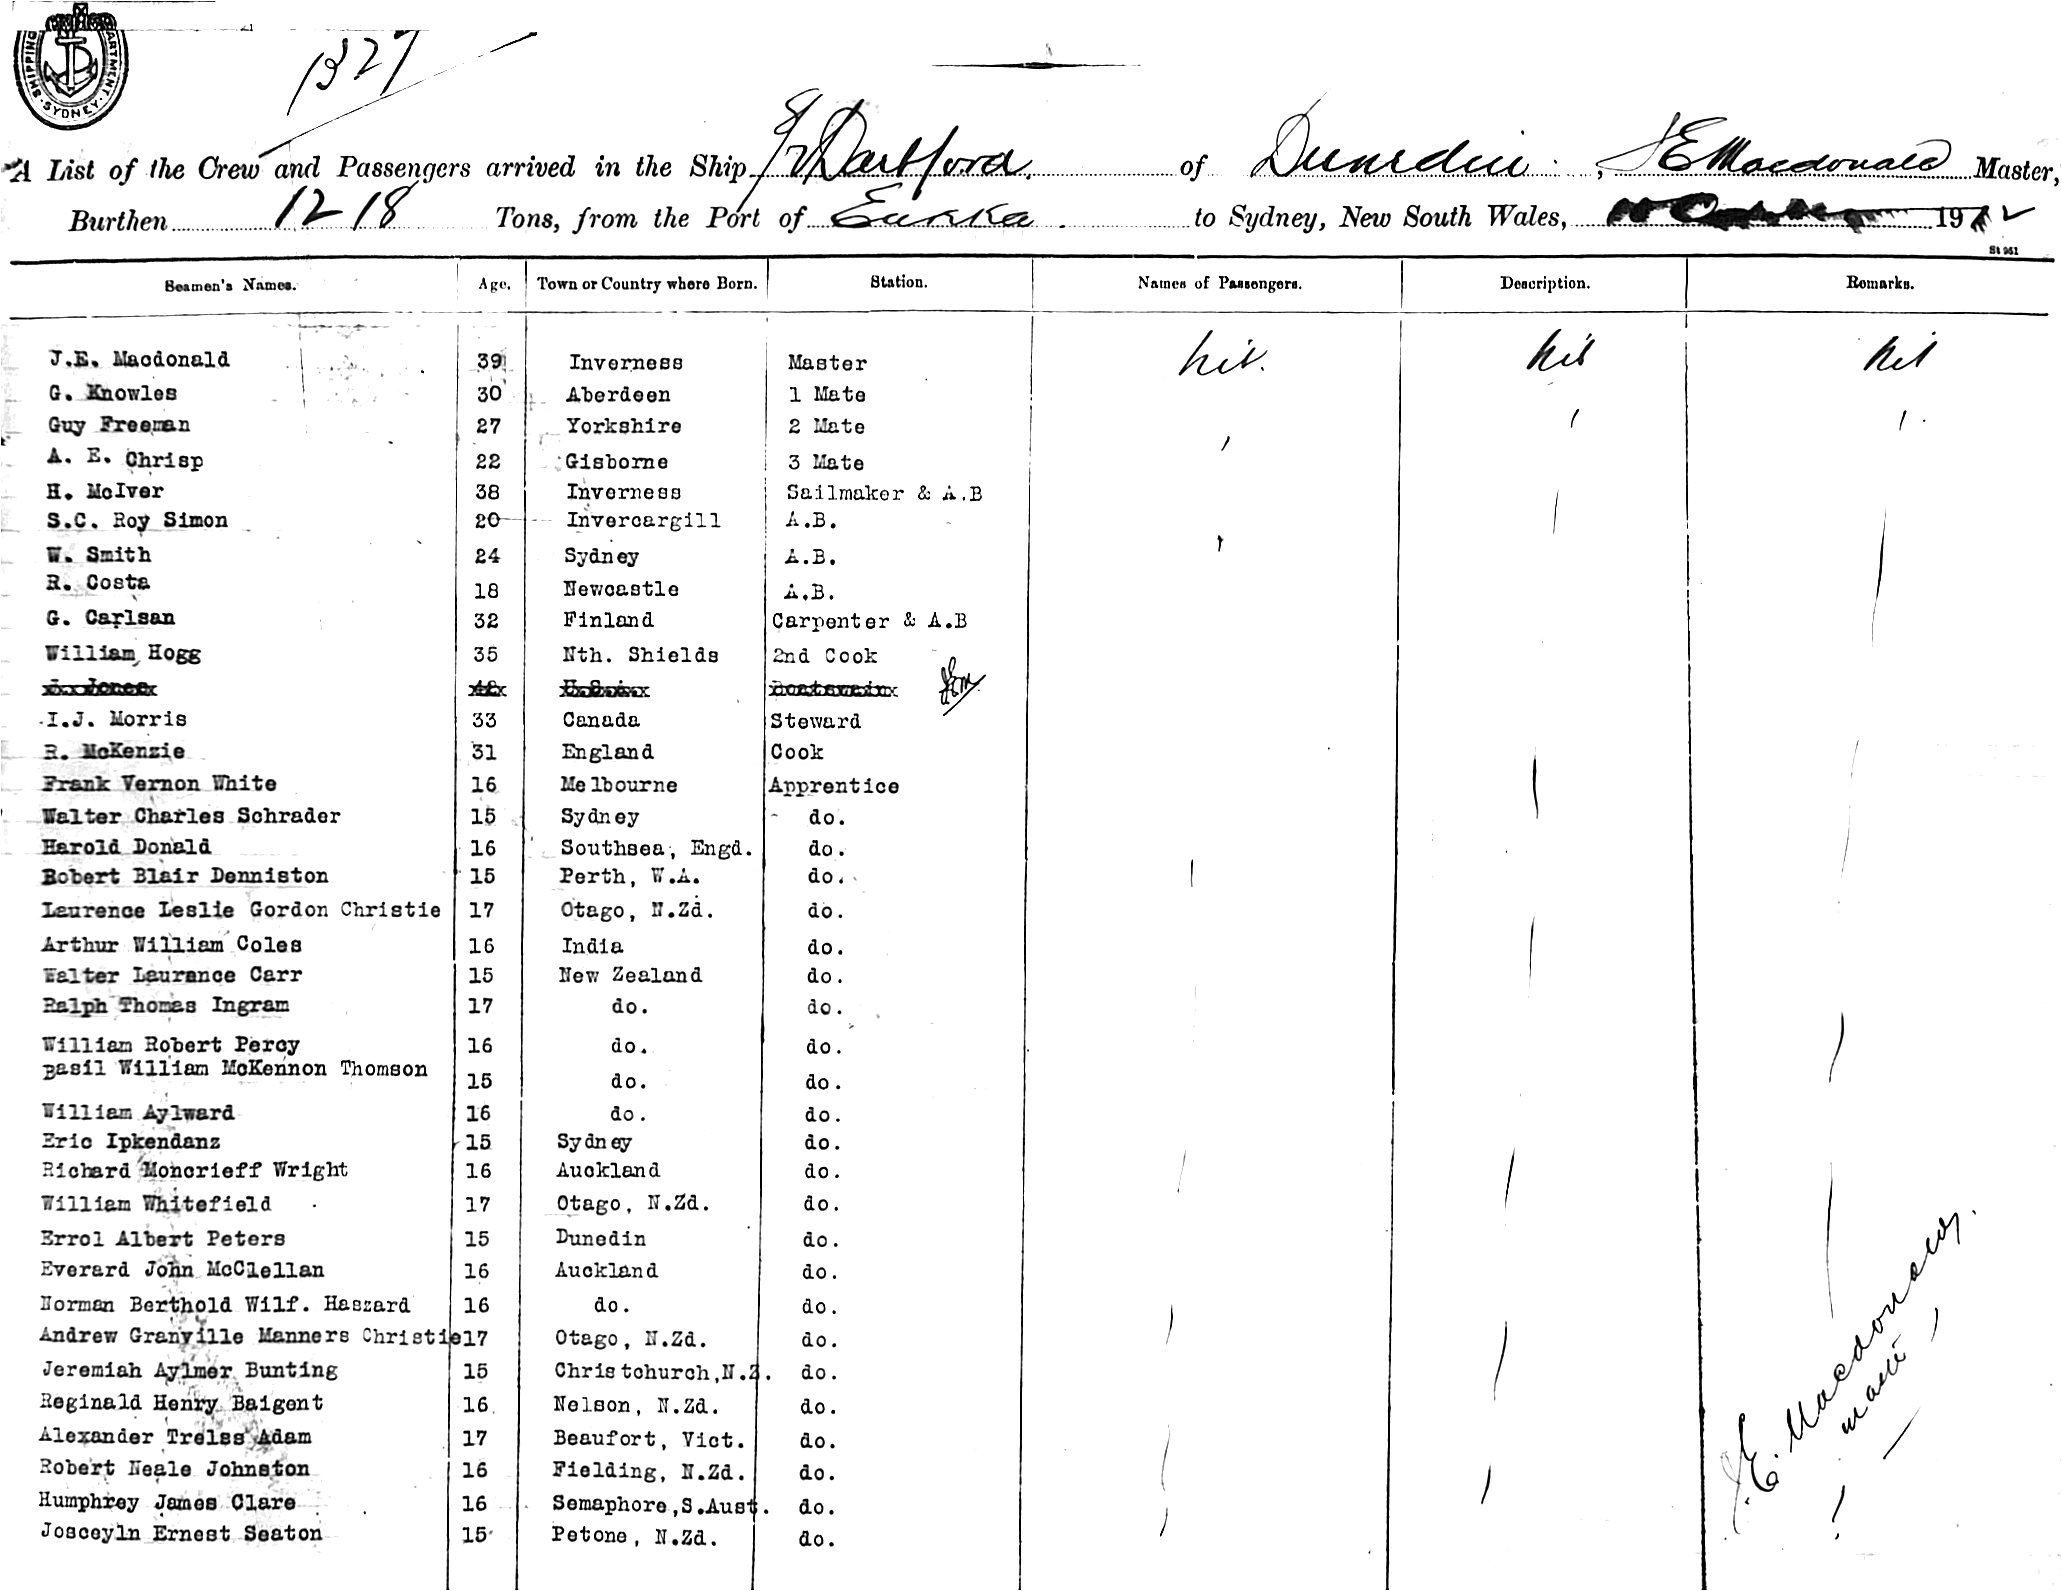 SHIPPING DEPARTMENT. SYDNEY
1327
A List of the Crew and Passengers arrived in the Ship Dartford of Dunedin, J E Macdonald Master,
Burthen 1218 Tons, from the Port of Eureka to Sydney, New South Wales, 1912
St 951
Seamen's Names. Age. Town or Country where Born. Station. Names of Passengers. Description. Remarks.
J.E. Macdonald 39 Inverness Master nil. nil nil
G. Knowles 30 Aberdeen 1 Mate
Guy Freeman 27 Yorkshire 2 Mate
A. E. Chrisp 22 Gisborne 3 Mate
H. McIver 38 Inverness Sailmaker & A.B
S.C. Roy Simon 20 Invercargill A.B.
W. Smith 24 Sydney A.B.
R. Costa 18 Newcastle A.B.
G. Carlsan 32 Finland Carpenter & A.B
William Hogg 35 Nth. Shields 2nd Cook
Jones Boatswain JEM
I.J. Morris 33 Canada Steward
R. McKenzie 31 England Cook
Frank Vernon White 16 Melbourne Apprentice
Walter Charles Schrader 15 Sydney do.
Harold Donald 16 Southsea, Engd. do.
Robert Blair Denniston 15 Perth, W.A. do.
Laurence Leslie Gordon Christie 17 Otago, N.Zd. do.
Arthur William Coles 16 India do.
Walter Laurance Carr 15 New Zealand do.
Ralph Thomas Ingram 17 do. do.
William Robert Percy 16 do. do.
Basil William McKennon Thomson 15 do. do.
William Aylward 16 do. do.
Eric Ipkendanz 15 Sydney do.
Richard Moncrieff Wright 16 Auckland do.
William Whitefield 17 Otago, N.Zd. do.
Errol Albert Peters 15 Dunedin do.
Everard John McClellan 16 Auckland do.
Norman Berthold Wilf. Haszard 16 do. do.
Andrew Granville Manners Christie 17 Otago, N.Zd. do.
Jeremiah Aylmer Bunting 15 Christchurch,N.Z. do.
Reginald Henry Baigent 16 Nelson, N.Zd. do.
Alexander Trelss Adam 17 Beaufort, Vict. do.
Robert Neale Johnston 16 Fielding, N.Zd. do.
Humphrey James Clare 16 Semaphore,S.Aust. do.
Josceyln Ernest Seaton 15 Petone, N.Zd. do.
J.E. Macdonald